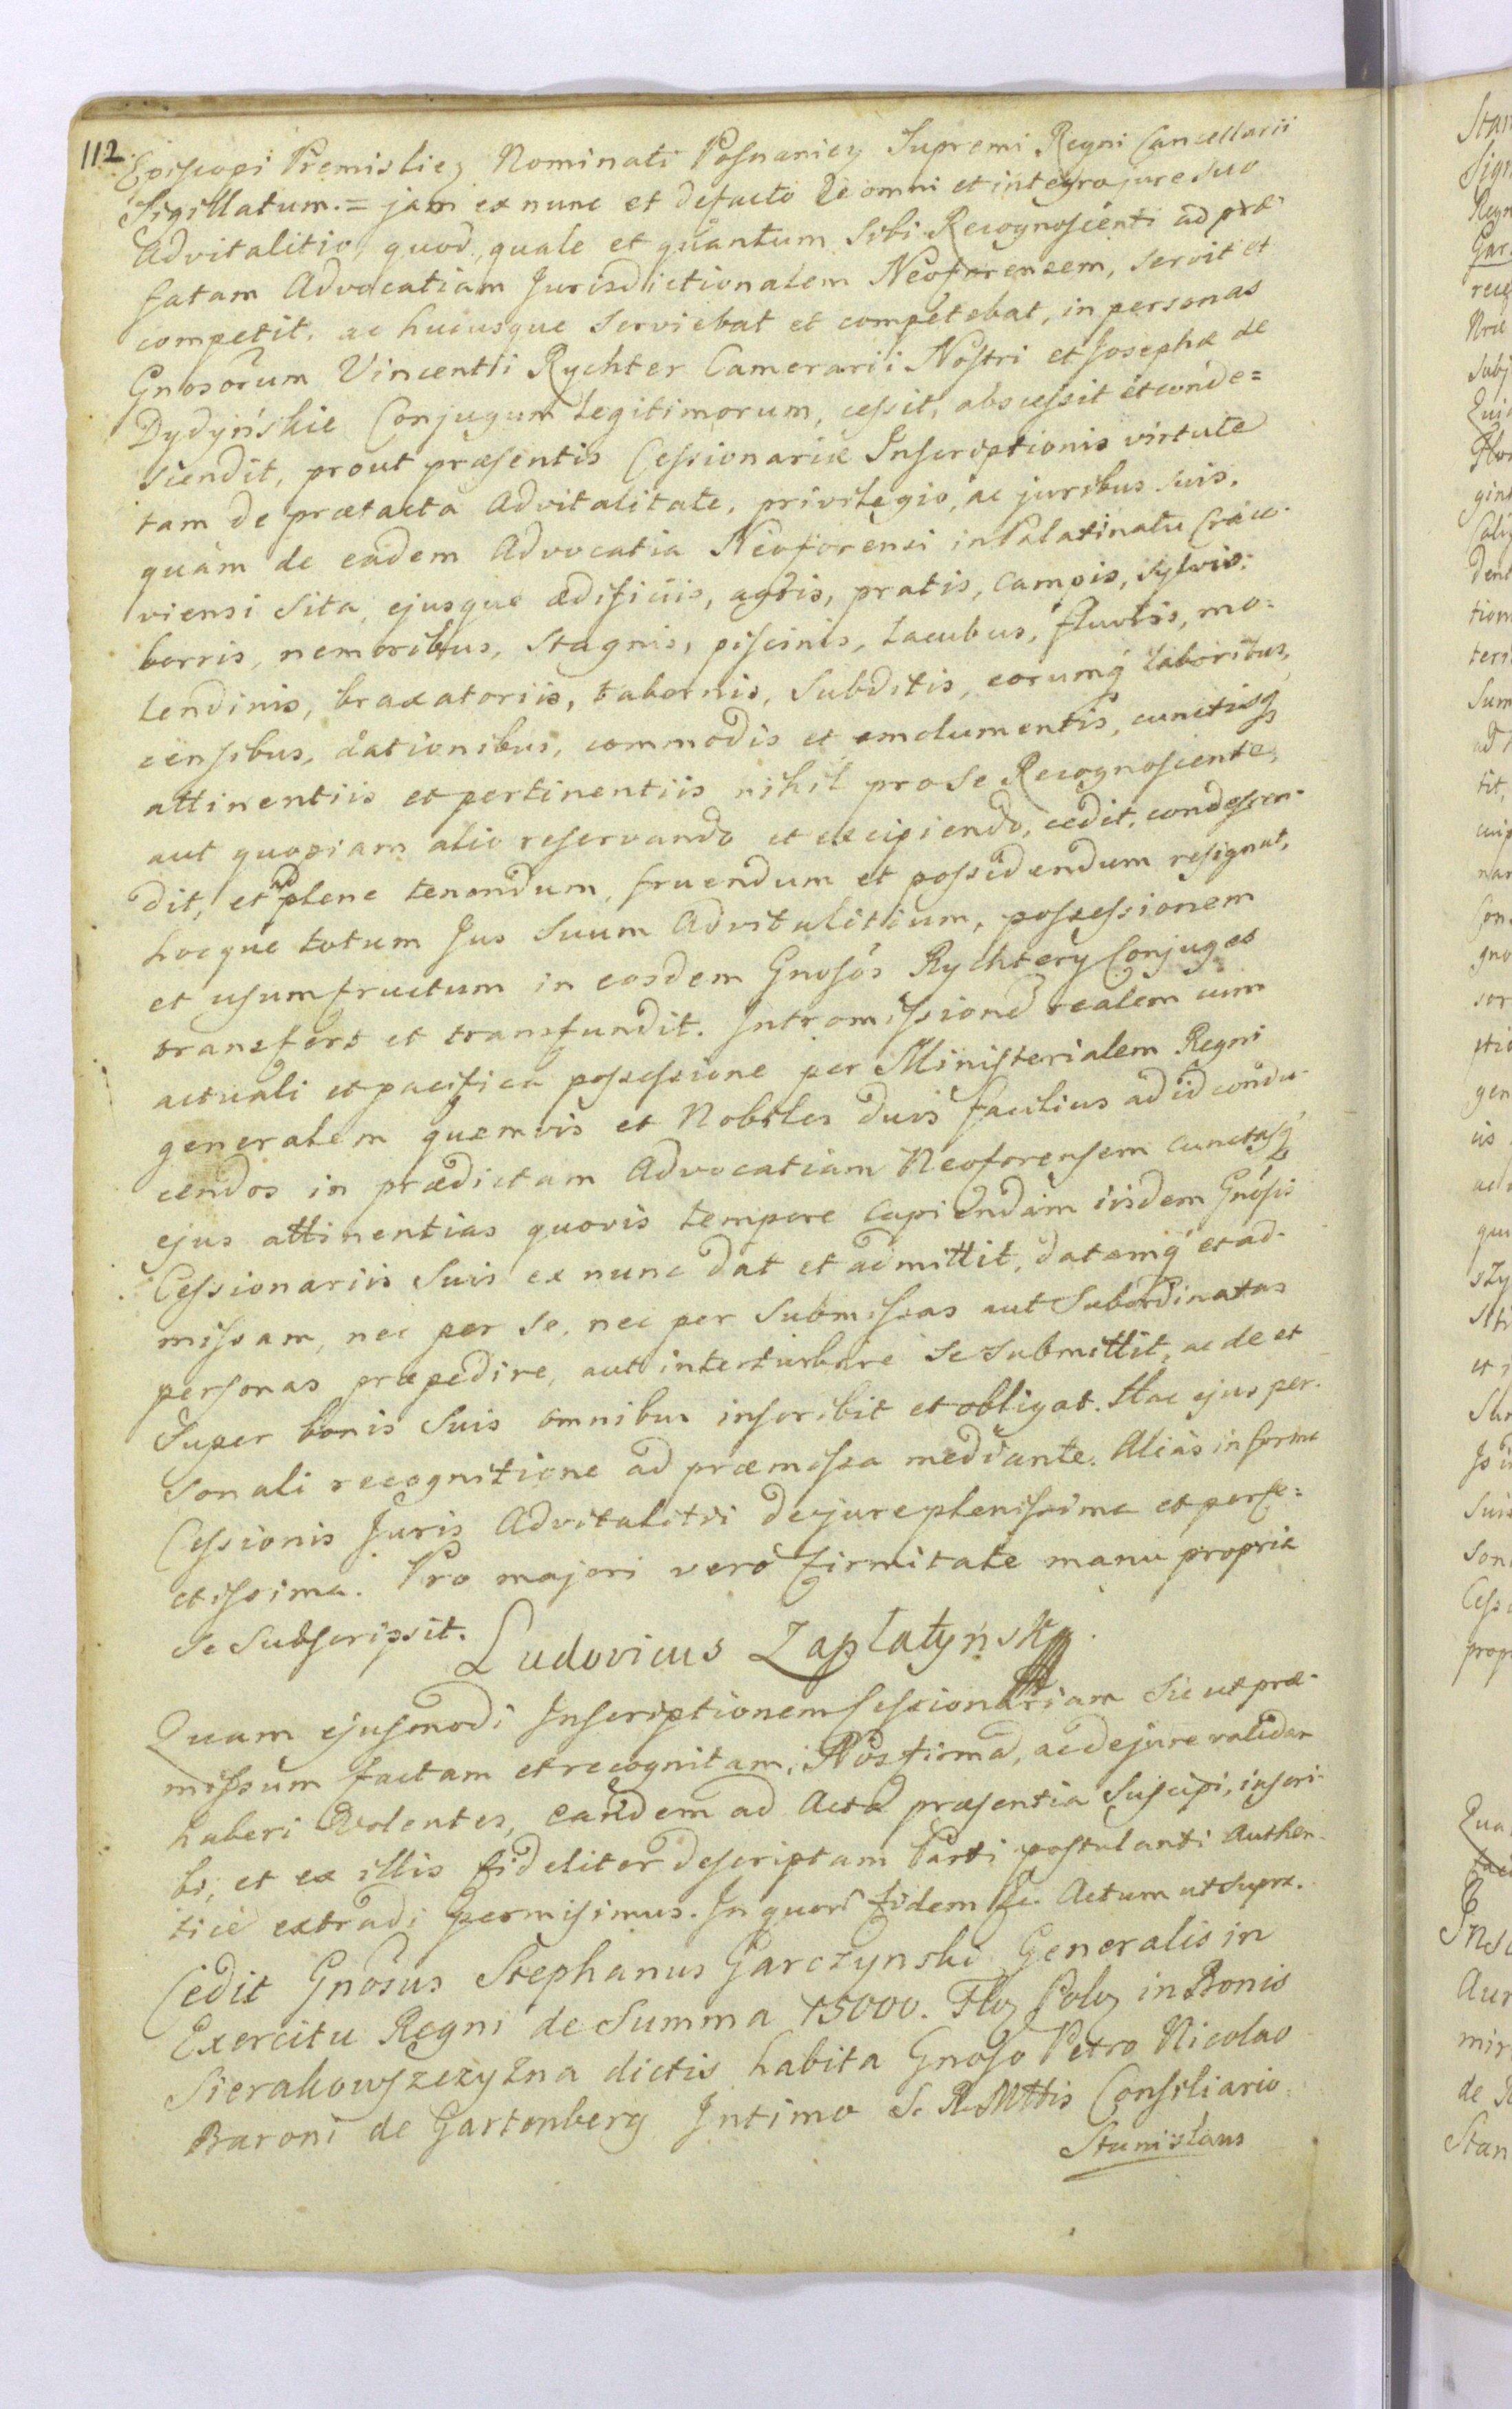 112
Episcopi Premisliez Nominati Posnaniez Supremi Regni Cancellarii
Sigillatum. = jam ex nunc et defacto de omni et integro jure suo
Advitalitio, quod, quale et quantum sibi Recognoscenti ad præ-
fatam Advocatiam Jurisdictionalem Neoforensem, servit et
competit, ac hucusque serviebat et competebat, in personas
Gnosorum Vincentii Rychter Camerarii Nostri et Josephæ de
Dydyńskie Conjugum legitimorum, cessit, abscessit et conde=
scendit, prout præsentis Cessionariæ Inscriptionis virtute
tam de prætacta Advitalitate, privilegio, ac juribus suis,
quàm de eadem Advocatia Neoforensi in Palatinatu Craco-
viensi sita, ejusque ædificiis, agris, pratis, campis, sylvis,
borris, nemoribus, stagnis, piscinis, lacubus, fluviis, mo-
lendinis, braxatoriis, tabernis, subditis, eorumq́ laboribus,
censibus, dationibus, commodis et emolumentis, cunctisq
attinentiis et pertinentiis nihil pro se Recognoscente,
aut quopiam alio reservando et excipiendo, cedit, condescen-
dit, et ad plene tenendum, fruendum et possidendum resignat,
hocque totum Jus suum Advitalitium, possessionem
et usumfructum in eosdem Gnosós Rychtery Conjuges
transfert et transfundit. Intromissionē realem cum
actuali et pacifica possessione per Ministerialem Regni
generalem quemvis et Nobiles duos facilius ad id condu-
cendos in prædictam Advocatiam Neoforensem cunctasq́
ejus attinentias quovis tempore capiendam iisdem Gnósis
Cessionariis suis ex nunc dat et admittit, datamq́ et ad-
missam, nec per se, nec per submissas aut subordinatas
personas præpedire, aut interturbare se submittit, ac de et
super bonis suis omnibus inscribit et obligat. Hac ejus per-
sonali recognitione ad præmissa mediante. Aliàs in forma
Cessionis Juris Advitalitii dejure plenissima et perfe=
ctissima. Pro majori verò firmitate manu propria
se subscripsit.
Ludovicus Zapłatyński.
Quam ejusmodi Inscriptionem Cessionariam sic ut præ-
missum factam et recognitam, Nos firmā, ac dejure validam
haberi volentes, eandem ad Acta præsentia suscipi, inscri-
bi, et ex illis fideliter descriptam Parti postulanti Authen-
ticè extradi permisimus. In quorū fidem &c. Actum ut supra.
Cedit Gnósus Stephanus Garczynski Generalis in
Exercitu Regni de Summa 15000. Floz Poloz in Bonis
Sierakowszczyzna dictis habita Gnoso Petro Nicolao
Baroni de Gartenberg Intimo S. R. Mttis Consiliario
Stanislaus